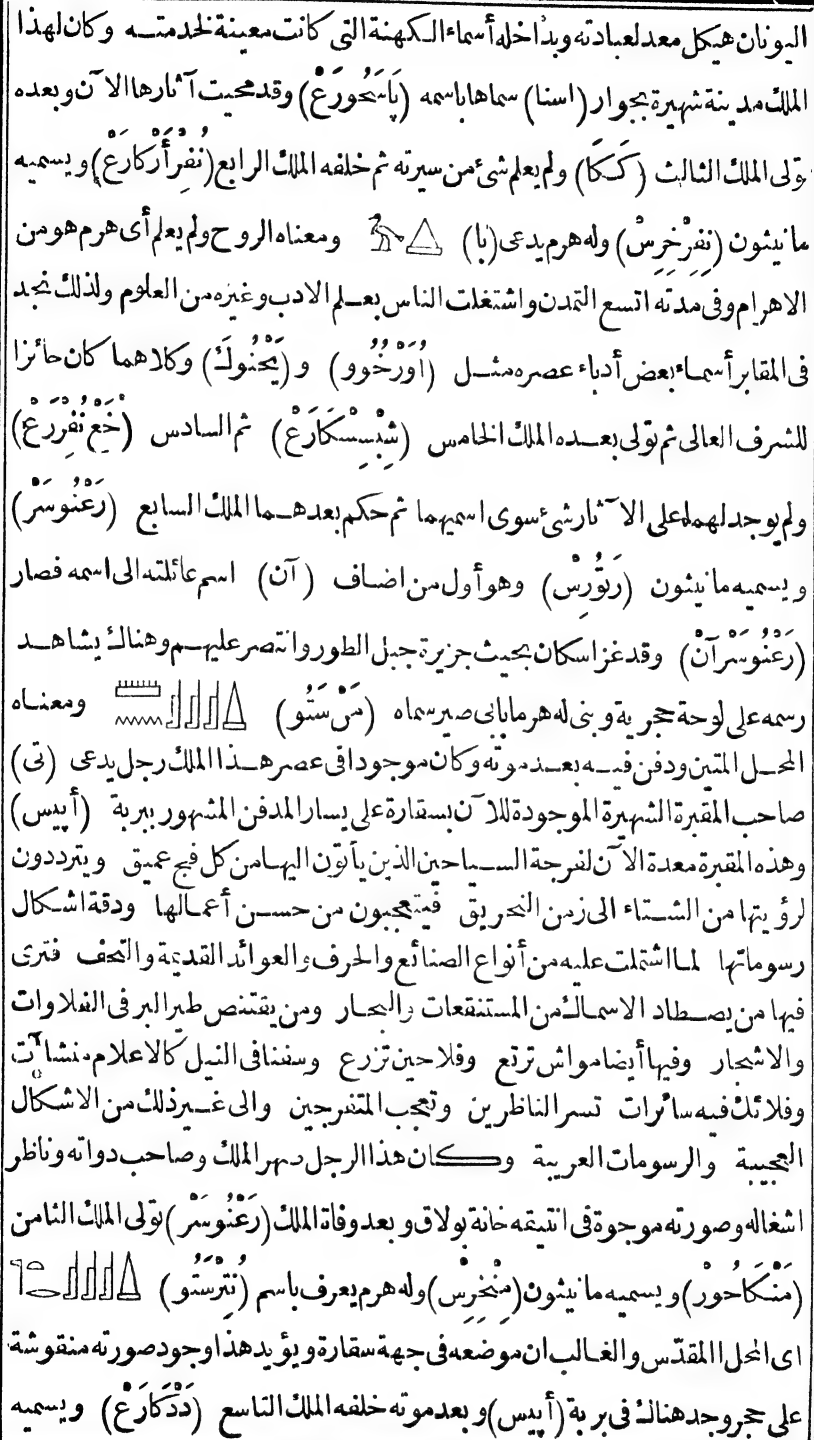 اليونان هيكل معد لعبادته وبداخله أسماء الكهنة التى كانت معينة لخدمته وكان لهذا
الملك مدينة شهيرة بجوار (اسنا) سماها باسمه (پَاسَحُورَعْ) وقد محيت آثارها الآن وبعده
تولى الملك الثالث (كَكَا) ولم يعلم شئ من سيرته ثم خلفه الملك الرابع (نُفِرْأَرْكارَعْ) ويسميه
مانيثون (نِفِرْخِرِسْ) وله هرم يدعى (با) ومعناه الروح ولم يعلم أى هرم هو من
الاهرام وفى مدته اتسع التمدن واشتغلت الناس بعلم الادب وغيره من العلوم ولذلك نجد
فى المقابر أسماء بعض أدباء عصره مثل (أُورْخُوو) و (يَحْنُوكَ) وكلاهما كان حائزا
للشرف العالى ثم تولى بعده الملك الخامس (شِبْسِسْكَارَعْ) ثم السادس (خَعْ نُفْرَرَعْ)
ولم يوجد لهما على الآثار شئ سوى اسميهما ثم حكم بعدهما الملك السابع (رَعْنُوسَرْ)
ويسميه مانيثون (رَتوُرِسْ) وهو أول من اضاف (آن) اسم عائلته الى اسمه فصار
(رَعْنُوسَرْآنْ) وقد غزا سكان بحيث جزيرة جبل الطور وانتصر عليهم وهناك يشاهد
رسمه على لوحة حجرية وبنى له هرما بابى صير سماه (مَنْ سَتُو) ومعناه
المحل المتين ودفن فيه بعد موته وكان موجودا فى عصر هذا الملك رجل يدعى (تى)
صاحب المقبرة الشهيرة الموجودة للآن بسقارة على يسار المدفن المشهور ببربة (أپيس)
وهذه المقبرة معدة الآن لفرجة السياحين الذين يأتون اليها من كل فج عميق ويترددون
لرؤيتها من الشتاء الى زمن التحريق فيتعجبون من حسن أعمالها ودقة اشكال
رسوماتها لما اشتملت عليه من أنواع الصنائع والحرف والعوائد القديمة والتحف فترى
فيها من يصطاد الاسماك من المستنقعات والبحار ومن يقتنص طير البر فى الفلاوات
والاشجار وفيها أيضا مواش ترتع وفلاحين تزرع وسفنا فى النيل كالاعلام منشآت
وفلائك فيه سائرات تسر الناظرين وتعجب المتفرجين والى غير ذلك من الاشكال
العجيبة والرسومات العربية وكان هذا الرجل صهر الملك وصاحب دواته وناظر
اشغاله وصورته موجوة فى انتيقه خانة بولاق وبعد وفاة الملك (رَعْنُوسَرْ) تولى الملك الثامن
(مَنْكَاحُورْ) ويسميه مانيثون (مِنْخِرِسْ) وله هرم يعرف باسم (نُتِرْسَتُو)
اى المحل المقدّس والغالب ان موضعه فى جهة سقارة ويؤيد هذا وجود صورته منقوشة
على حجر وجد هناك فى بربة (أپيس) وبعد موته خلفه الملك التاسع (دَدْكَارَعْ) ويسميه